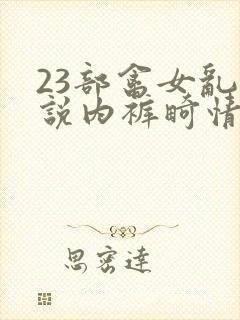 23部畬女亂
說内裤畸情
思密達